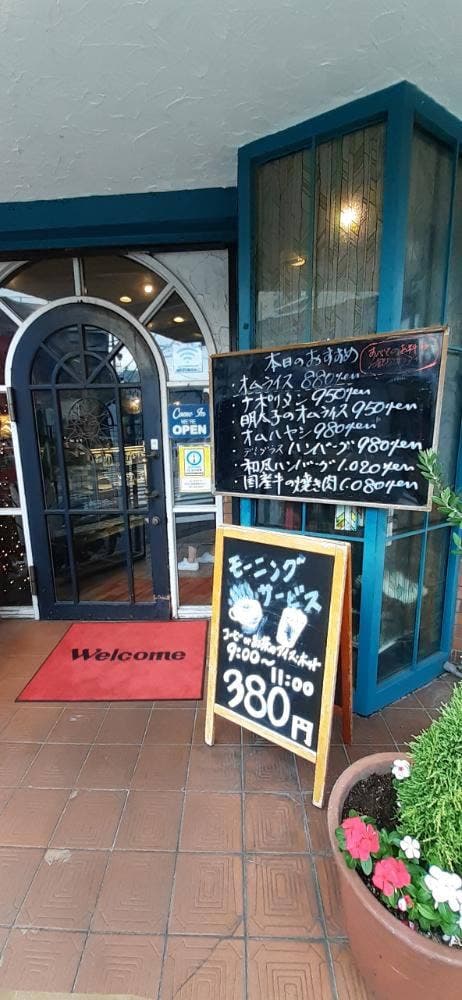 本日のおすすめ
・オムライス 880yen
・ナポリタン 950yen
・明太子のオムライス 950yen
・オムハヤシ 980yen
・デミグラスハンバーグ 980yen
・和風ハンバーグ 1.020yen
・国産牛の焼き肉 1.080yen
Come In
WE'RE
OPEN
Welcome
モーニング
サービス
コーヒー or お茶のアイス・ホット
9:00〜11:00
380円